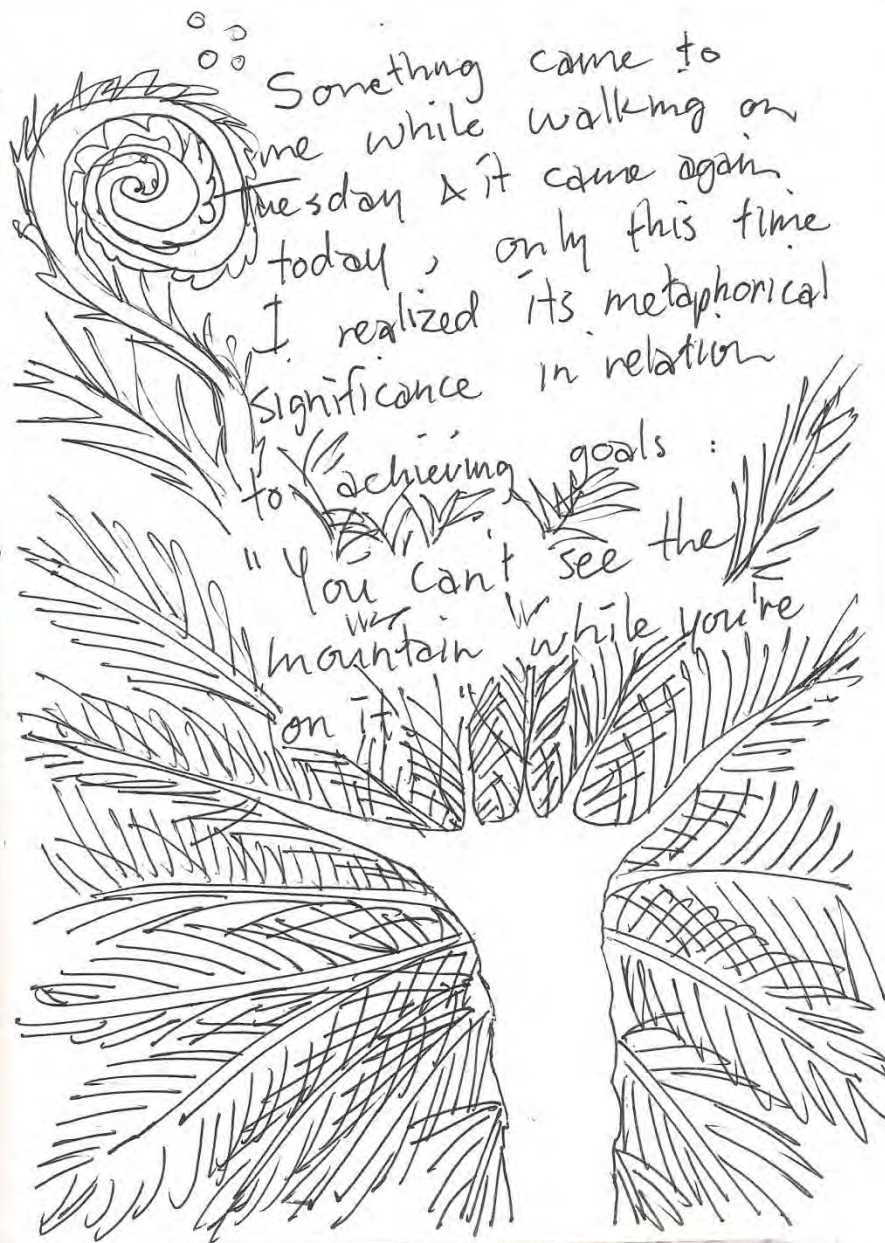 Something came to
me while walking on
Tuesday & it came again
today, only this time
I realized its metaphorical
significance in relation
to achieving goals :
"You can't see the
mountain while you're
on it"